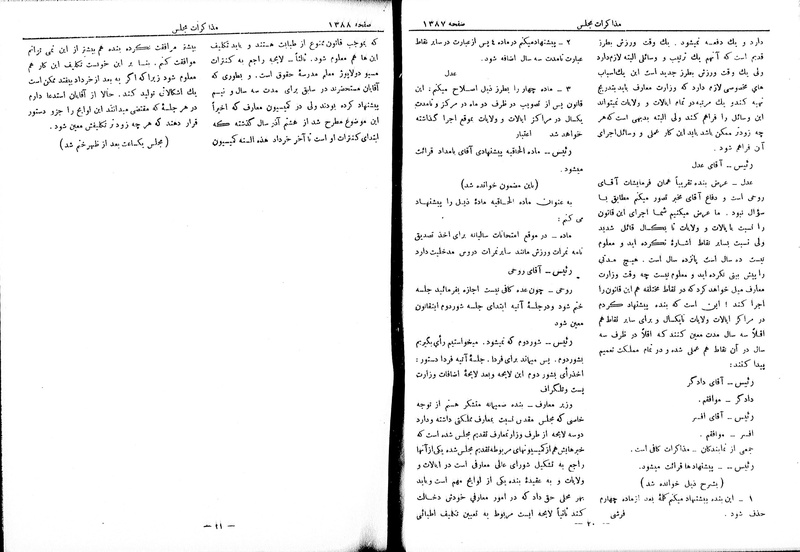 صفحه ۱۳۸۷
مذاکرات مجلس
دارد و یك دفعه نمیشود . یك وقت ورزش بطرز
قدیم است که آنهم یك ترتیب و وسائلی البته لازم دارد
ولی یك وقت ورزش بطرز جدید است این یك اسباب
های مخصوصی لازم دارد که وزارت معارف باید بتدریج
تهیه کند و یك مرتبه در تمام ایالات و ولایات نمیتواند
این وسائل را فراهم کند ولی البته بدیهی است که هر
چه زودتر ممکن باشد باید این کار عملی و وسائل اجرای
آن فراهم شود .
رئیس ــ آقای عدل
عدل ــ عرض بنده تقریباً همان فرمایشات آقای
روحی است و دفاع آقای مخبر تصور میکنم مطابق با
سؤال نبود . ما عرض میکنیم شما اجرای این قانون
را نسبت بایالات و ولایات تا یکسال قائل شدید
ولی نسبت بسایر نقاط اشاره نکرده اید و معلوم
نیست ده سال است پانزده سال است . هیچ مدتی
را پیش بینی نکرده اید و معلوم نیست چه وقت وزارت
معارف میل خواهد کرد که در نقاط مختلفه هم این قانون را
اجرا کند ؛ این است که بنده پیشنهاد کردم
در مراکز ایالات و ولایات تا یکسال و برای سایر نقاط هم
اقلاً سه سال مدت معین کنند که اقلاً در ظرف سه
سال در آن نقاط هم عملی شده و در تمام مملکت تعمیم
پیدا کنند :
رئیس ــ آقای دادگر
دادگر ــ موافقم .
رئیس ــ آقای افسر
افسر ــ موافقم .
جمعی از نمایندگان ــ مذاکرات کافی است .
رئیس ــ پیشنهادها قرائت میشود.
(بشرح ذیل خوانده شد)
۱ ــ این بنده پیشنهاد میکنم کلمۀ بعد از ماده چهارم
حذف شود . فرشی
۲ ــ پیشنهاد میکنم در ماده ٤ پس از عبارت در سایر نقاط
عبارت تا مدت سه سال اضافه شود.
عدل
۳ ــ ماده چهار را بطرز ذیل اصلاح میکنم : این
قانون پس از تصویب در ظرف دو ماه در مرکز و تا مدت
یکسال در مراکز ایالات و ولایات بموقع اجرا گذاشته
خواهد شد اعتبار
رئیس ــ ماده الحاقیه پیشنهادی آقای بامداد قرائت
میشود.
(باین مضمون خوانده شد)
به عنوان ماده الحاقیه مادۀ ذیل را پیشنهاد
می کنم :
ماده ــ در موقع امتحانات سالیانه برای اخذ تصدیق
نامه نمرات ورزش مانند سایر نمرات دروس مدخلیت دارد
رئیس ــ آقای روحی
روحی ــ چون عده کافی نیست اجازه بفرمائید جلسه
ختم شود و در جلسۀ آتیه ابتدای جلسه شور دوم اینقانون
معین شود
رئیس ــ شور دوم که نمیشود. میخواستیم رأی بگیریم
بشور دوم. پس میماند برای فردا . جلسۀ آتیه فردا دستور :
اخذ رأی بشور دوم این لایحه و بعد لایحۀ اضافات وزارت
پست و تلگراف
وزیر معارف ــ بنده صمیمانه متشکر هستم از توجه
خاصی که مجلس مقدس نسبت بمعارف مملکتی داشته و دارد
دو سه لایحه از طرف وزارتمعارف تقدیم مجلس شده است که
خبرهایش هم از کمیسیونهای مربوطه تقدیم مجلس شده یکی از آنها
راجع به تشکیل شورای عالی معارفی است در ایالات و
ولایات و به عقیدۀ بنده یکی از لوایح مهم است و باید
بهر محلی حق داد که در امور معارفی خودش دخالت
کنند ثانیاً لایحه ایست مربوط به تعیین تکلیف اطبائی
ــ ۲۰ ــ
مذاکرات مجلس
صفحه ۱۳۸۸
که بموجب قانون ممنوع از طبابت هستند و باید تکلیف
این ها هم معلوم شود. ثالثاً ــ لایحه راجع به کنترات
مسیو دولاپوژ معلم مدرسۀ حقوق است . و بطوری که
آقایان مستحضرند در سابق برای مدت سه سال و نیم
پیشنهاد کرده بودند ولی در کمیسیون معارف که اخیراً
این موضوع مطرح شد از هشتم آذر سال گذشته که
ابتدای کنترات او است تا آخر خرداد هذه السنه کمیسیون
بیشتر موافقت نکرده بنده هم بیشتر از این نمی توانم
موافقت کنم . بنا بر این خوبست تکلیف این کار هم
معلوم شود زیرا که اگر به بعد از خرداد بیفتد ممکن است
یك اشکالاتی تولید کند. حالا از آقایان استدعا دارم
در هر جلسۀ که مقتضی میدانند این لوایح را جزو دستور
قرار دهند که هر چه زودتر تکلیفش معین شود .
(مجلس یکساعت بعد از ظهر ختم شد)
ــ ۲۱ ــ